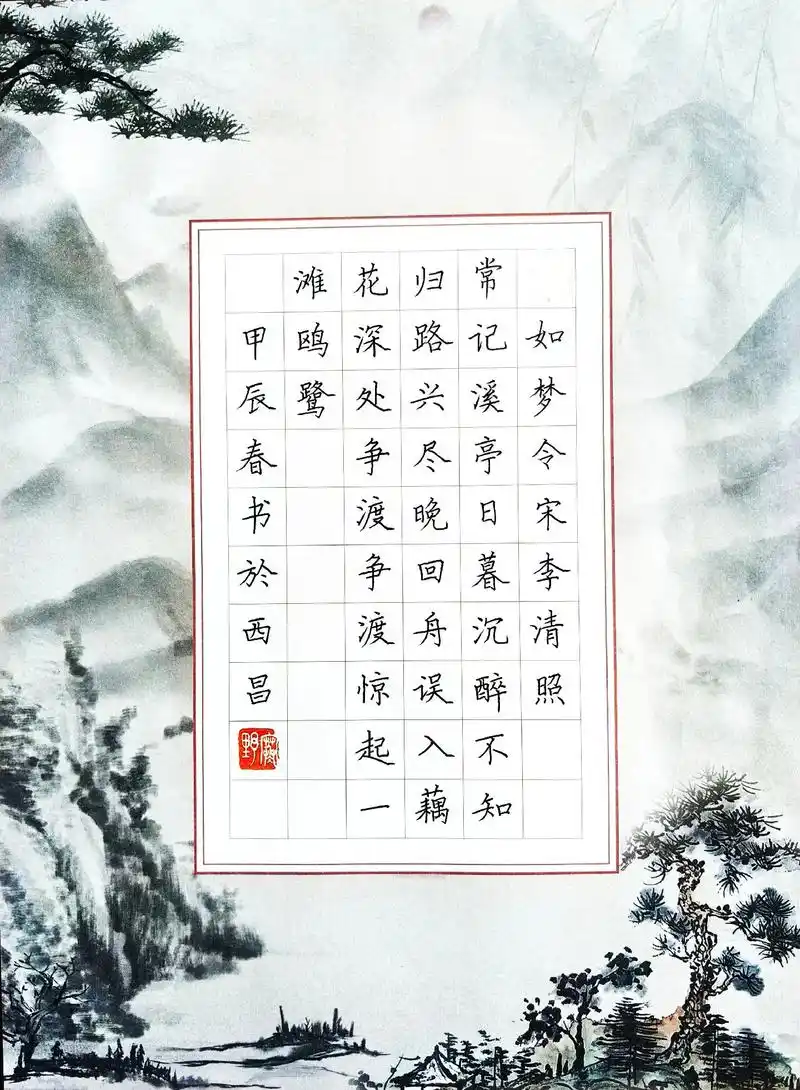 如梦令宋李清照
常记溪亭日暮沉醉不知
归路兴尽晚回舟误入藕
花深处争渡争渡惊起一
滩鸥鹭
甲辰春书於西昌